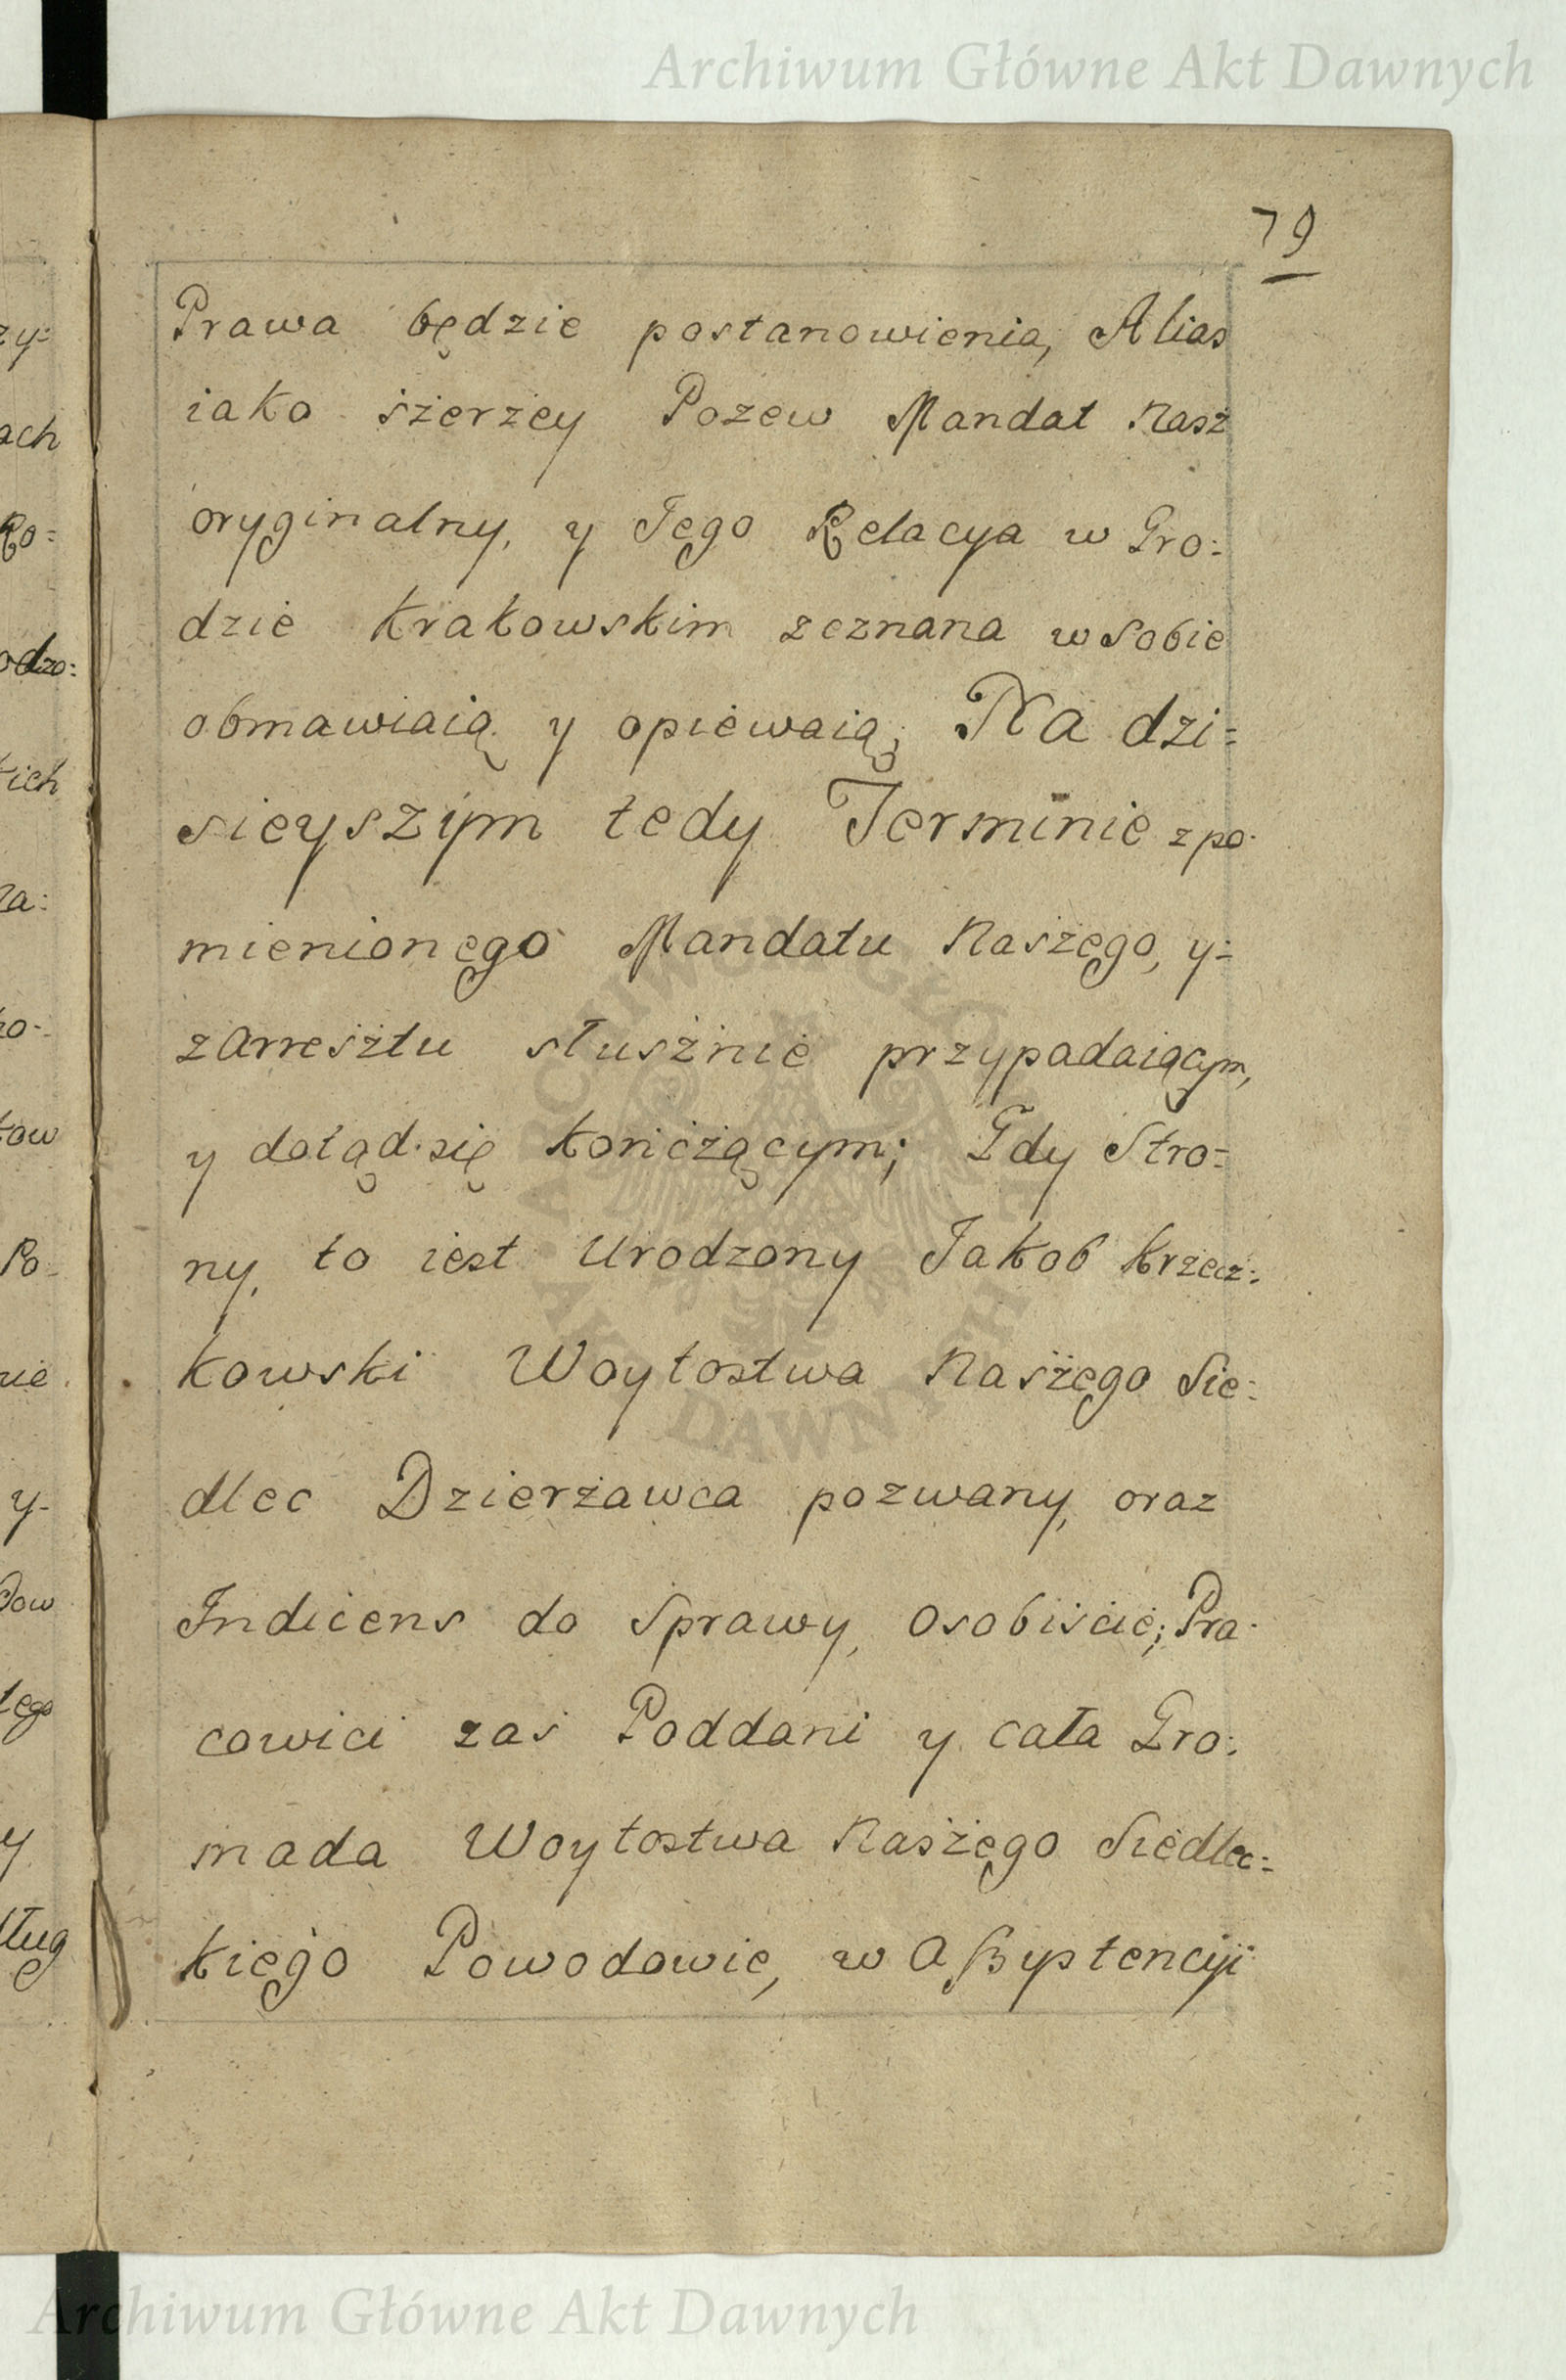 Archiwum Główne Akt Dawnych
79
Prawa będzie postanowienia, Alias
iako szerzey Pozew Mandat Nasz
oryginalny, y Jego Relacya w Gro:
dzie Krakowskim zeznana w Sobie
obmawiaią y opiewaią; Na dzi=
sieyszym tedy Terminie z po-
mienionego Mandatu Naszego, y=
z Arresztu słusznie przypadaiącym,
y dotąd się kończącym; Gdy Stro=
ny, to iest Urodzony Jakob Krzecz:
kowski Woytostwa Naszego Sie:
dlec Dzierżawca pozwany, oraz
Indicens do Sprawy, osobiście; Pra-
cowici zaś Poddani y cała Gro:
mada Woytostwa Naszego Siedlec=
kiego Powodowie, w Aßystencyi
ARCHIWUM GŁÓWNE
AKT DAWNYCH
Archiwum Główne Akt Dawnych